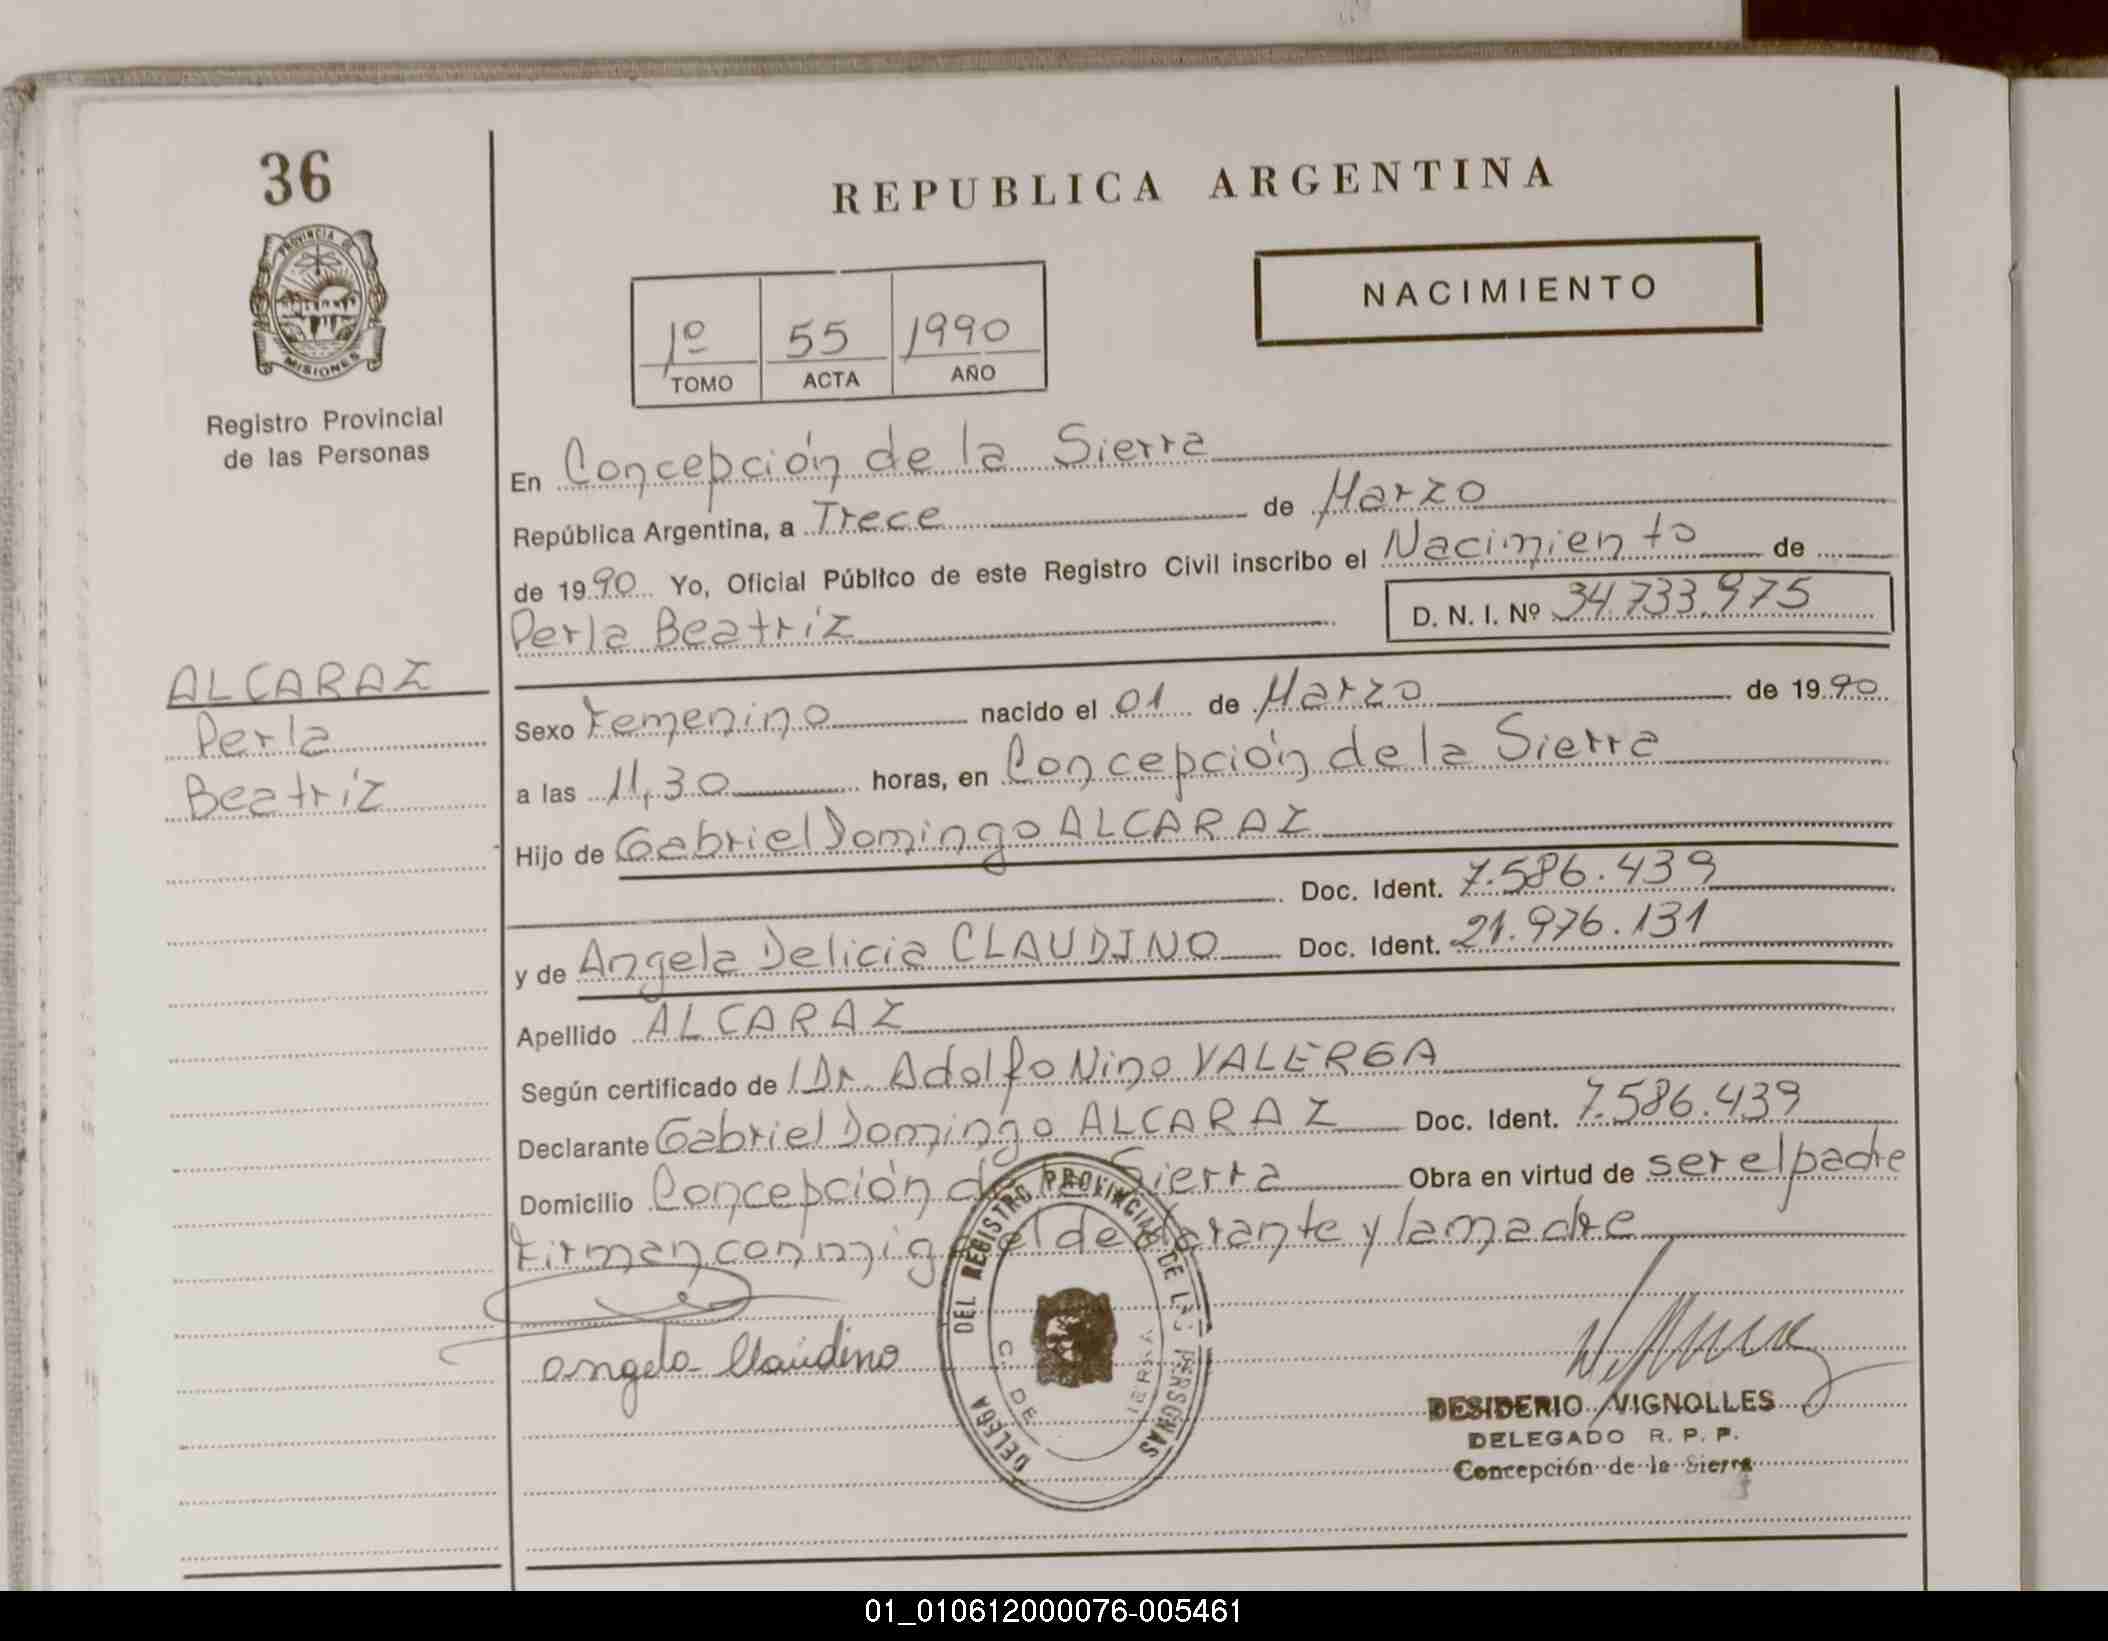 36
PROVINCIA DE
MISIONES
Registro Provincial
de las Personas
REPUBLICA ARGENTINA
NACIMIENTO
1º 55 1990
TOMO ACTA AÑO
En Concepción de la Sierra
República Argentina, a Trece de Marzo
de 1990 Yo, Oficial Público de este Registro Civil inscribo el Nacimiento de
Perla Beatríz D. N. I. Nº 34.733.975
ALCARAZ
Perla
Beatríz
Sexo Femenino nacido el 01 de Marzo de 1990
a las 11,30 horas, en Concepción de la Sierra
Hijo de Gabriel Domingo ALCARAZ
Doc. Ident. 7.586.439
y de Angela Delicia CLAUDINO Doc. Ident. 21.976.131
Apellido ALCARAZ
Según certificado de Dr. Adolfo Nino VALERGA
Declarante Gabriel Domingo ALCARAZ Doc. Ident. 7.586.439
Domicilio Concepción de la Sierra Obra en virtud de ser el padre
Firman conmigo el declarante y la madre
Angela Claudino
DELEGA DEL REGISTRO PROVINCIAL DE LAS PERSONAS
C. DE IERRA
DESIDERIO VIGNOLLES
DELEGADO R. P. P.
Concepción de la Sierra
01_010612000076-005461